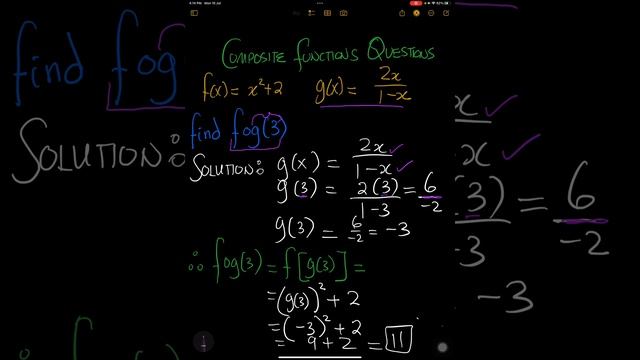 4:14 PM Mon 10 Jul
82%
COMPOSITE FUNCTIONS QUESTIONS
f(x) = x²+2 g(x) = 2x/1-x
find fog(3)
SOLUTION: g(x) = 2x/1-x
g(3) = 2(3)/1-3 = 6/-2
g(3) = 6/-2 = -3
∴ fog(3) = f[g(3)] =
= (g(3))² + 2
= (-3)² + 2
= 9 + 2 = 11
find fog
SOLUTION:
x
x
3) = 6
-3 -2
-3